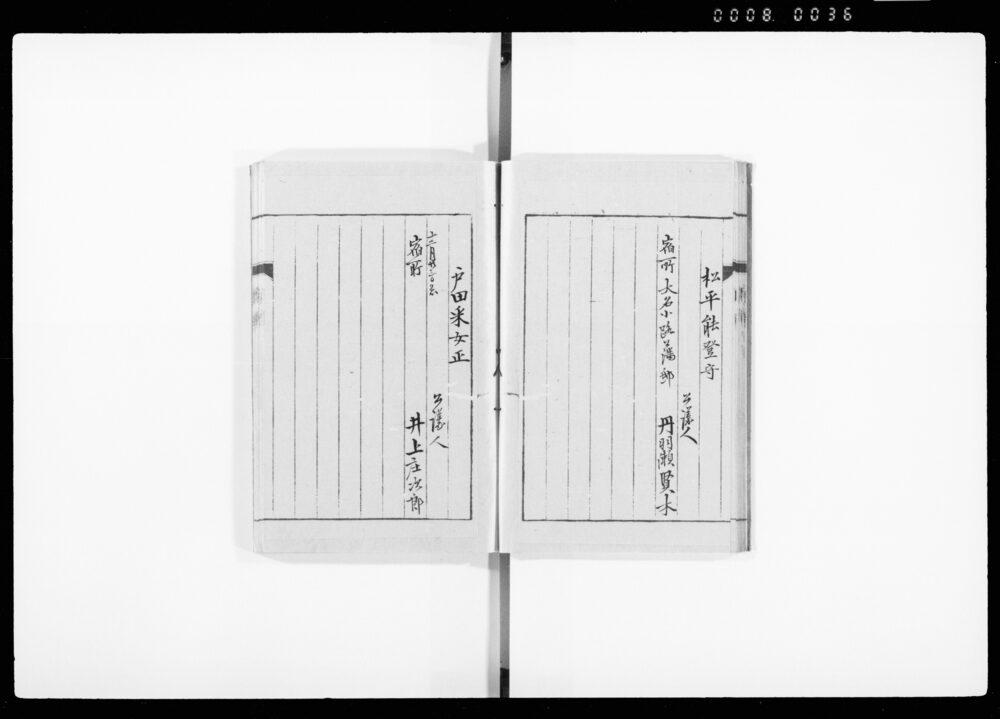 0008. 0036
松平能登守
公議人
宿所 大名小路藩邸 丹羽瀬賢太
戸田采女正
公議人
十二月
宿所 井上庄次郎